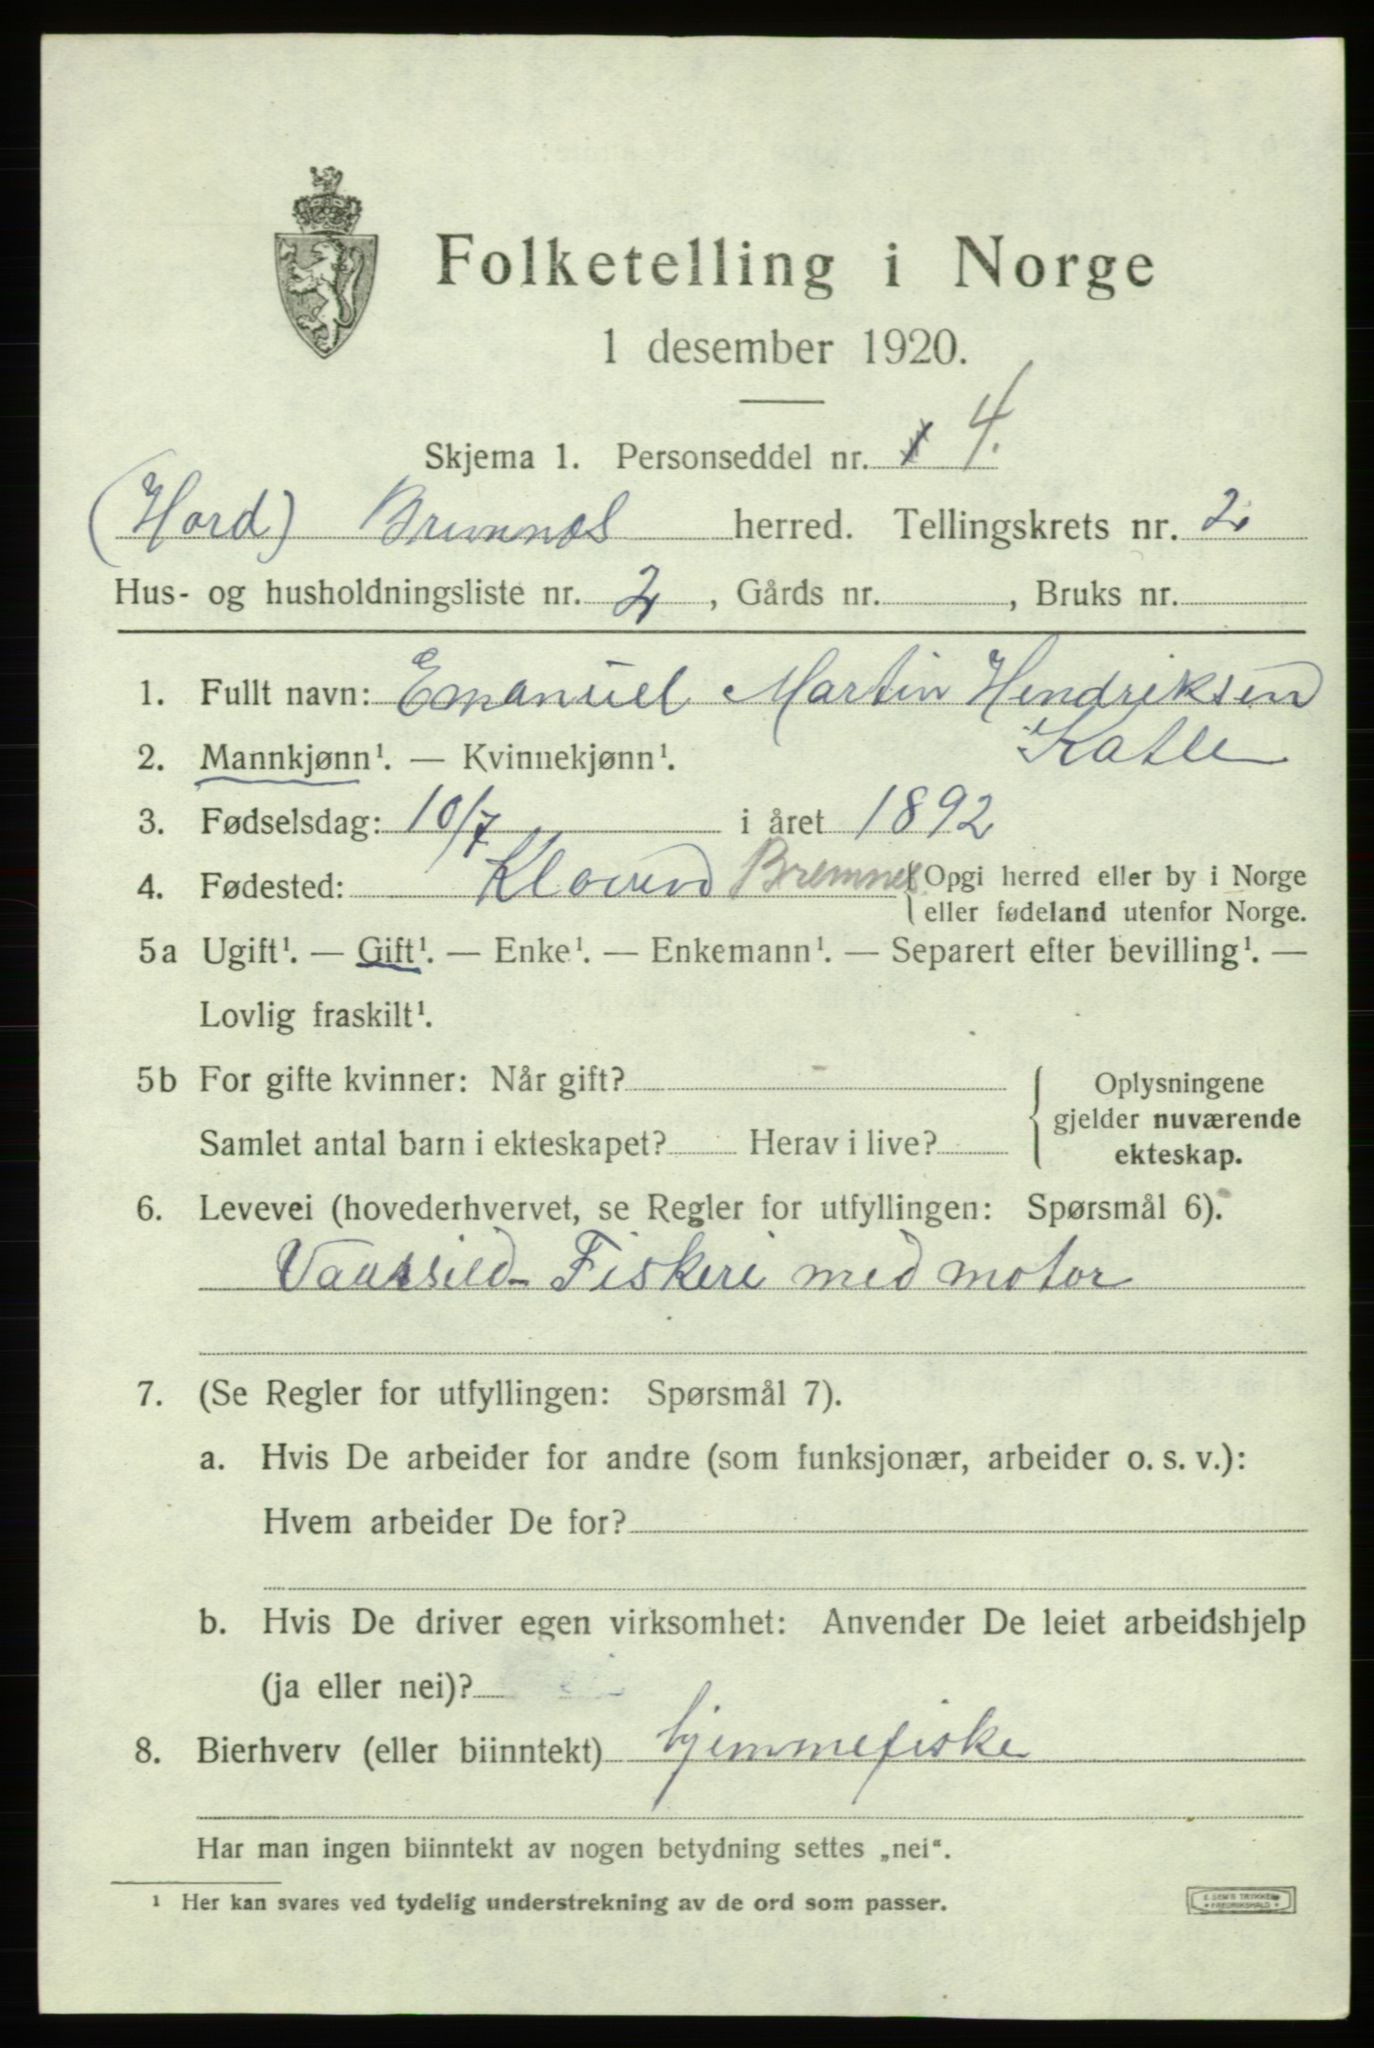 Folketelling i Norge
1 desember 1920.
Skjema 1. Personseddel nr. 4.
(Hord) Bremnes herred. Tellingskrets nr. 2
Hus- og husholdningsliste nr. 2, Gårds nr. , Bruks nr.
1. Fullt navn: Emanuel Martin Hendriksen
Katle
2. Mannkjønn¹. — Kvinnekjønn¹.
3. Fødselsdag: 10/7 i året 1892
4. Fødested: Bremnes { Opgi herred eller by i Norge
eller fødeland utenfor Norge.
5a Ugift¹. — Gift¹. — Enke¹. — Enkemann¹. — Separert efter bevilling¹. —
Lovlig fraskilt¹.
5b For gifte kvinner: Når gift? { Oplysningene
gjelder nuværende
Samlet antal barn i ekteskapet? Herav i live? ekteskap.
6. Levevei (hovederhvervet, se Regler for utfyllingen: Spørsmål 6).
Vaarsild- Fiskeri med motor
7. (Se Regler for utfyllingen: Spørsmål 7).
a. Hvis De arbeider for andre (som funksjonær, arbeider o. s. v.):
Hvem arbeider De for?
b. Hvis De driver egen virksomhet: Anvender De leiet arbeidshjelp
(ja eller nei)?
8. Bierhverv (eller biinntekt) hjemmefiske
Har man ingen biinntekt av nogen betydning settes „nei“.
¹ Her kan svares ved tydelig understrekning av de ord som passer.